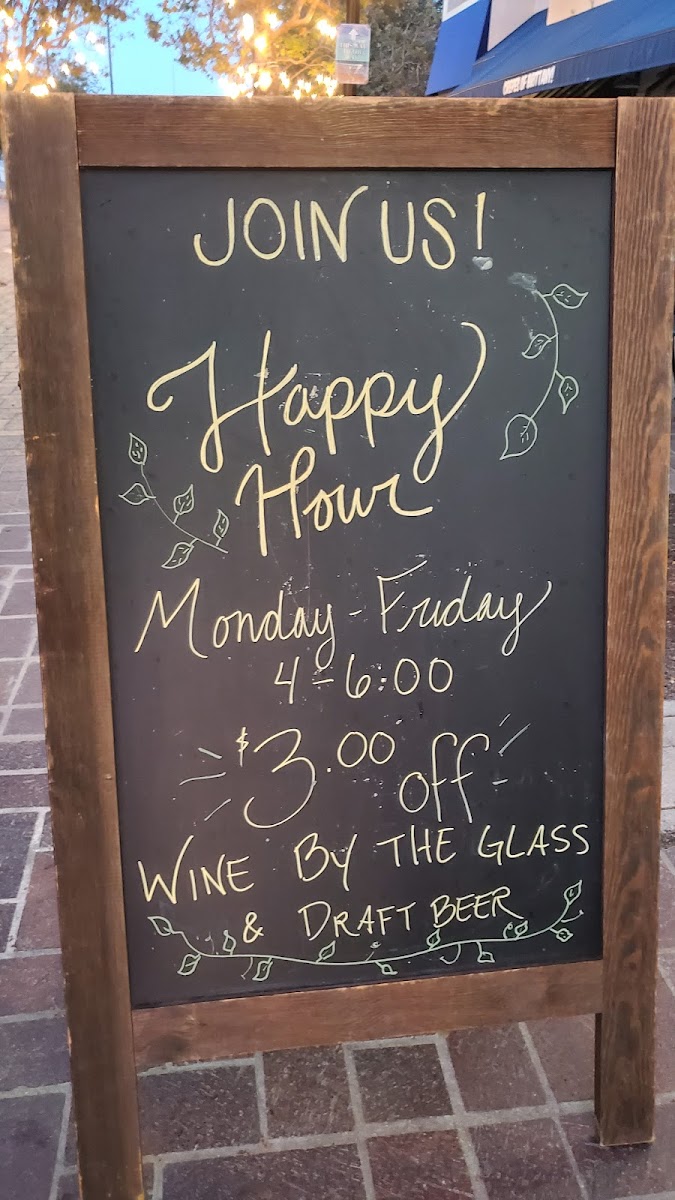 JOIN US!
Happy
Hour
Monday - Friday
4 - 6:00
$3.00 off
WINE BY THE GLASS
& DRAFT BEER